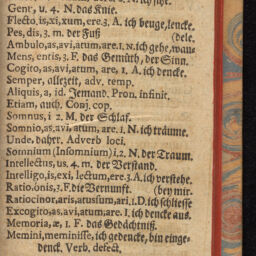 Genu, u. 4. N. das Knie.
Flecto, is, xi, xum, ere. 3. A. ich beuge, lencke.
Pes, dis, 3. m. der Fuß (dele.
Ambulo, as, avi, atum, are. 1. N. ich gehe, wan-
Mens, entis, 3. F. das Gemüth, der Sinn.
Cogito, as, avi, atum, are, 1. A. ich dencke.
Semper, allezeit, adv. temp.
Aliquis, a, id. Jemand. Pron. infinit.
Etiam, auch, Conj. cop.
Somnus, i 2. M. der Schlaf.
Somnio, as, avi, atum, are. 1. N. ich träume.
Unde. daher. Adverb loci.
Somnium (Insomnium) i. 2. N. der Traum.
Intellectus, us. 4. m. der Verstand.
Intelligo, is, exi, lectum, ere. 3. A. ich verstehe.
Ratio, onis, 3. F. die Vernunft. (bey mir.
Ratiocinor, aris, atus sum, ari. 1. D. ich schliesse
Excogito, as, avi, atum, are. 1. ich dencke aus.
Memoria, æ, 1. F. das Gedächtniß.
Memini, meminisse, ich gedencke, bin einge-
denck. Verb. defect.